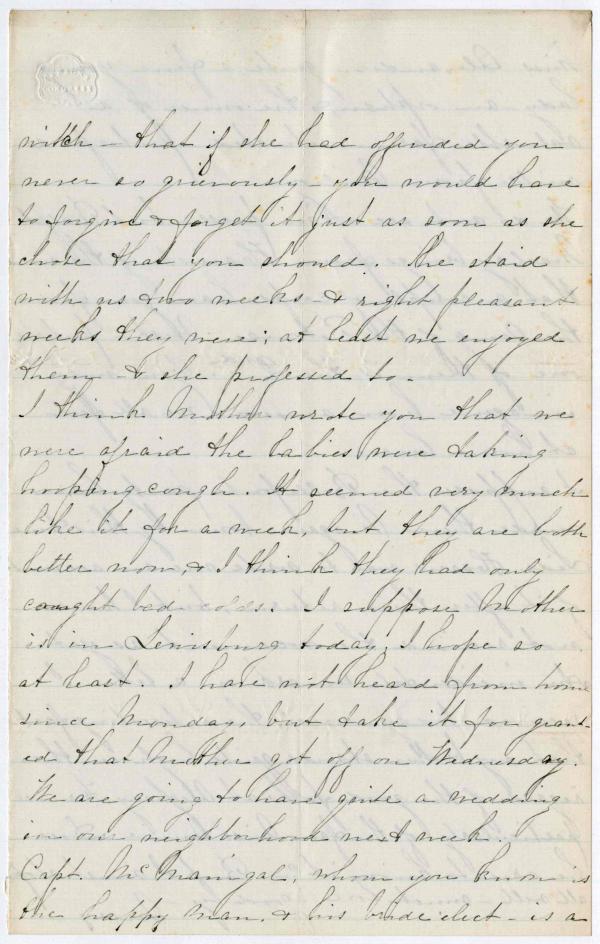 witch - that if she had offended you
never so grievously - you would have
to forgive & forget it just as soon as she
chose that you should. She staid
with us two weeks - & right pleasant
weeks they were; at least we enjoyed
them - & she professed to -
I think Mother wrote you that we
were afraid the babies were taking
hooping-cough. It seemed very much
like it for a week, but they are both
better now, & I think they had only
caught bad colds. I suppose Mother
is in Lewisburg today, I hope so
at least. I have not heard from home
since Monday, but take it for grant-
ed that Mother got off on Wednesday.
We are going to have quite a wedding
in our neighborhood next week.
Capt. McMaingal, whom you know is
the happy man, & his bride elect - is a